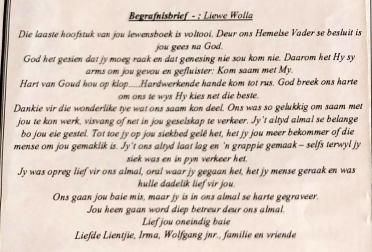 Begrafnisbrief - ; Liewe Wolla
Die laaste hoofstuk van jou lewensboek is voltooi. Deur ons Hemelse Vader se besluit is
jou gees na God.
God het gesien dat jy moeg raak en dat genesing nie sou kom nie. Daarom het Hy sy
arms om jou gevou en gefluister: Kom saam met My.
Hart van Goud hou op klop.....Hardwerkende hande kom tot rus. God breek ons harte
om ons te wys Hy kies net die beste.
Dankie vir die wonderlike tye wat ons saam kon deel. Ons was so gelukkig om saam met
jou te kon werk, visvang of net in jou geselskap te verkeer. Jy't altyd almal se belange
bo jou eie gestel. Tot toe jy op jou siekbed gelê het, het jy jou meer bekommer of die
mense om jou gemaklik is. Jy't ons altyd laat lag en 'n grappie gemaak – selfs terwyl jy
siek was en in pyn verkeer het.
Jy was opreg lief vir ons almal, oral waar jy gegaan het, het jy mense geraak en was
hulle dadelik lief vir jou.
Ons gaan jou baie mis, maar jy is in ons almal se harte gegraveer.
Jou heen gaan word diep betreur deur ons almal.
Lief jou oneindig baie
Liefde Lientjie, Irma, Wolfgang jnr., familie en vriende